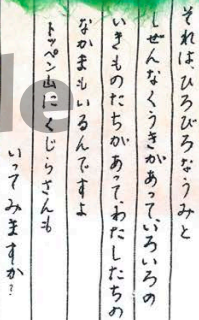 それは、ひろびろなうみと
しぜんなくうきがあって、いろいろの
いきものたちがあって、わたしたちの
なかまもいるんですよ
トッペン山にくじらさんも
いってみますか？